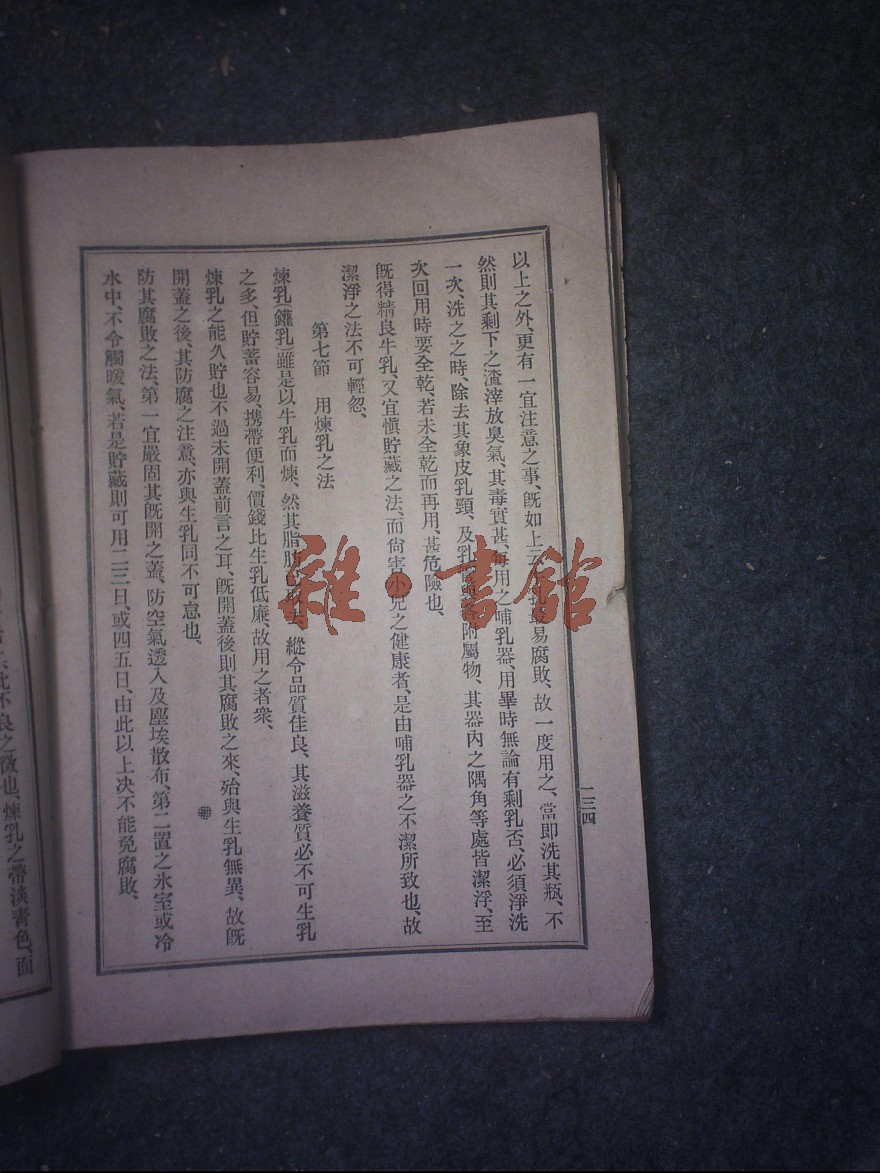 以上之外、更有一宜注意之事、旣如上云易腐敗、故一度用之、當卽洗其瓶、不
然則其剩下之渣滓放臭氣、其毒實甚、每用之哺乳器、用畢時無論有剩乳否、必須淨洗
一次、洗之之時、除去其象皮乳頸、及乳附屬物、其器內之隅角等處皆潔浮、至
次回用時要全乾、若未全乾而再用、甚危險也、
旣得精良牛乳、又宜愼貯藏之法、而尙害小兒之健康者、是由哺乳器之不潔所致也、故
潔淨之法不可輕忽、
第七節 用煉乳之法
煉乳(鑵乳)雖是以牛乳而煉、然其脂肪縱令品質佳良、其滋養質必不可生乳
之多、但貯蓄容易、携帶便利、價錢比生乳低廉、故用之者衆、
煉乳之能久貯也不過未開蓋前言之耳、旣開蓋後則其腐敗之來、殆與生乳無異、故旣
開蓋之後、其防腐之注意、亦與生乳同不可忘也、
防其腐敗之法、第一宜嚴固其旣開之蓋、防空氣透入及塵埃散布、第二置之氷室或冷
水中、不令觸暖氣、若是貯藏則可用二三日、或四五日、由此以上决不能免腐敗、
二三四
不良之徵也、煉乳之帶淡靑色、面
雜·書館